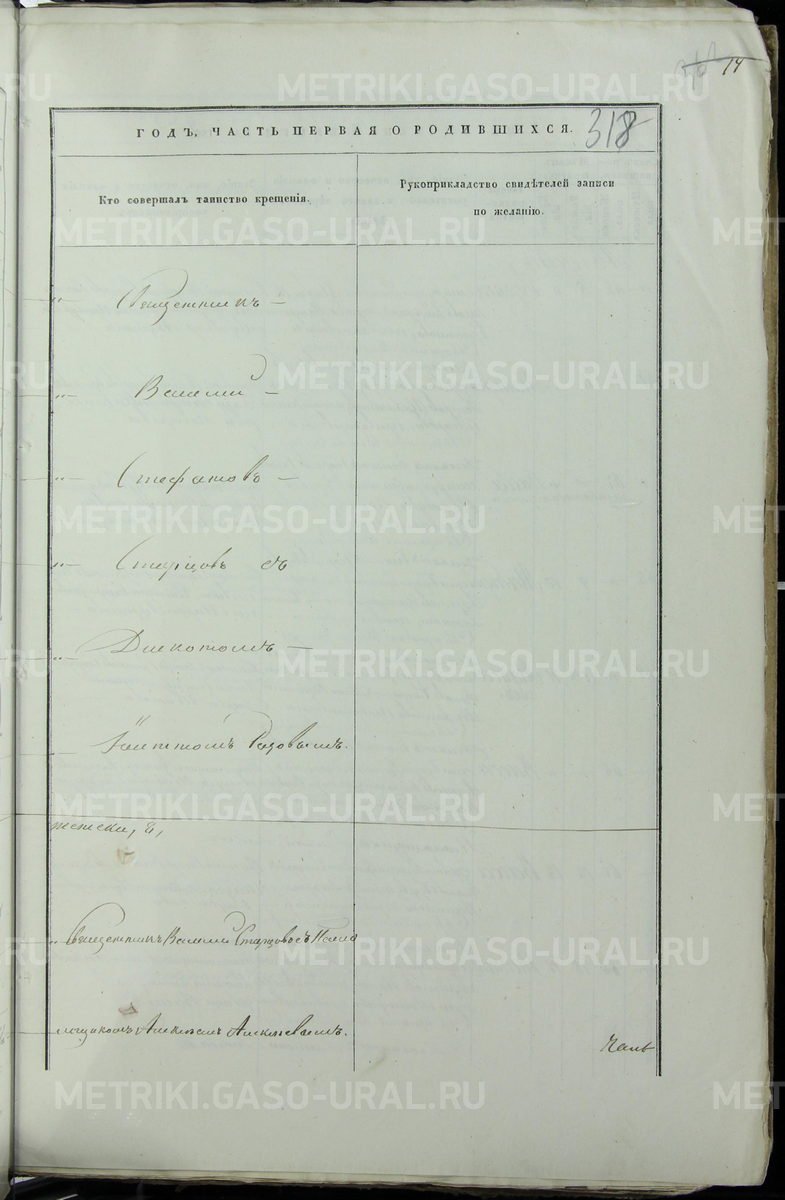 14
318
ГОДЪ, ЧАСТЬ ПЕРВАЯ О РОДИВШИХСЯ.
Кто совершалъ таинство крещенія.
Рукоприкладство свидѣтелей записи
по желанію.
„ Священникъ —
„ Василій —
„ Стефановъ —
„ Старцовъ съ
„ Діакономъ —
Іоанномъ
женска,
„ Священникъ Василій Старцовъ съ
Алексѣемъ Алексѣевымъ.
METRIKI.GASO-URAL.RU